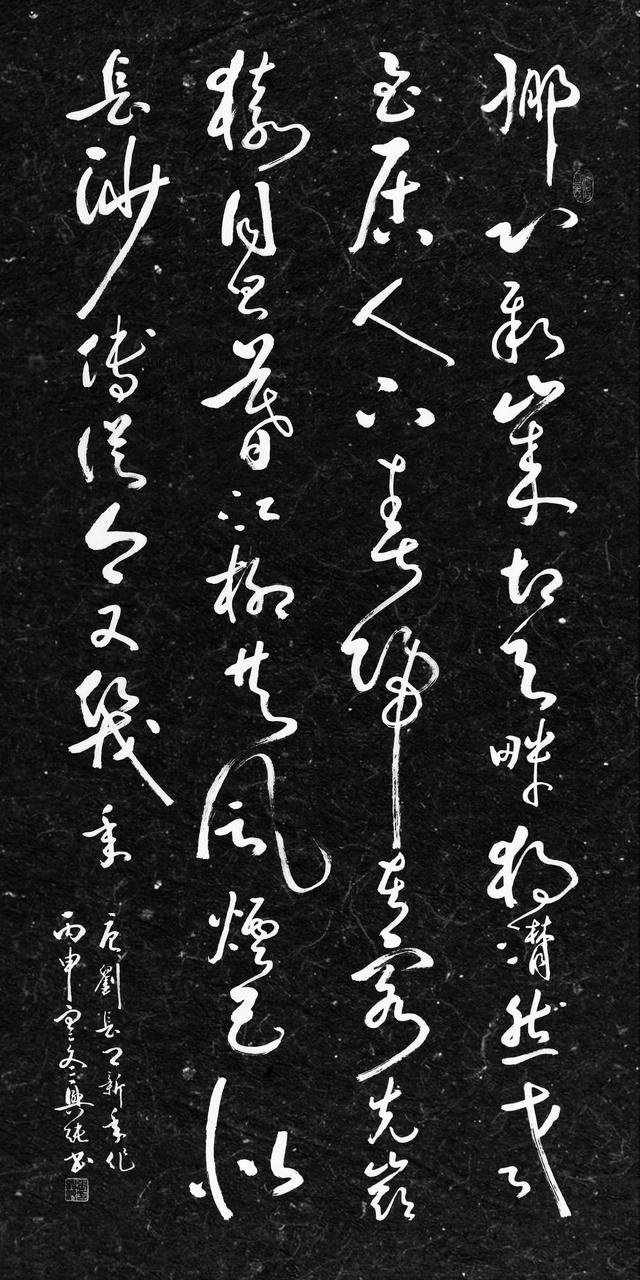 鄉心新歲切天畔獨潸然老
至居人下春歸在客先嶺
猿同旦暮江柳共風煙已似
長沙傅從今又幾年
唐劉長卿新年作
丙申寒冬興純書